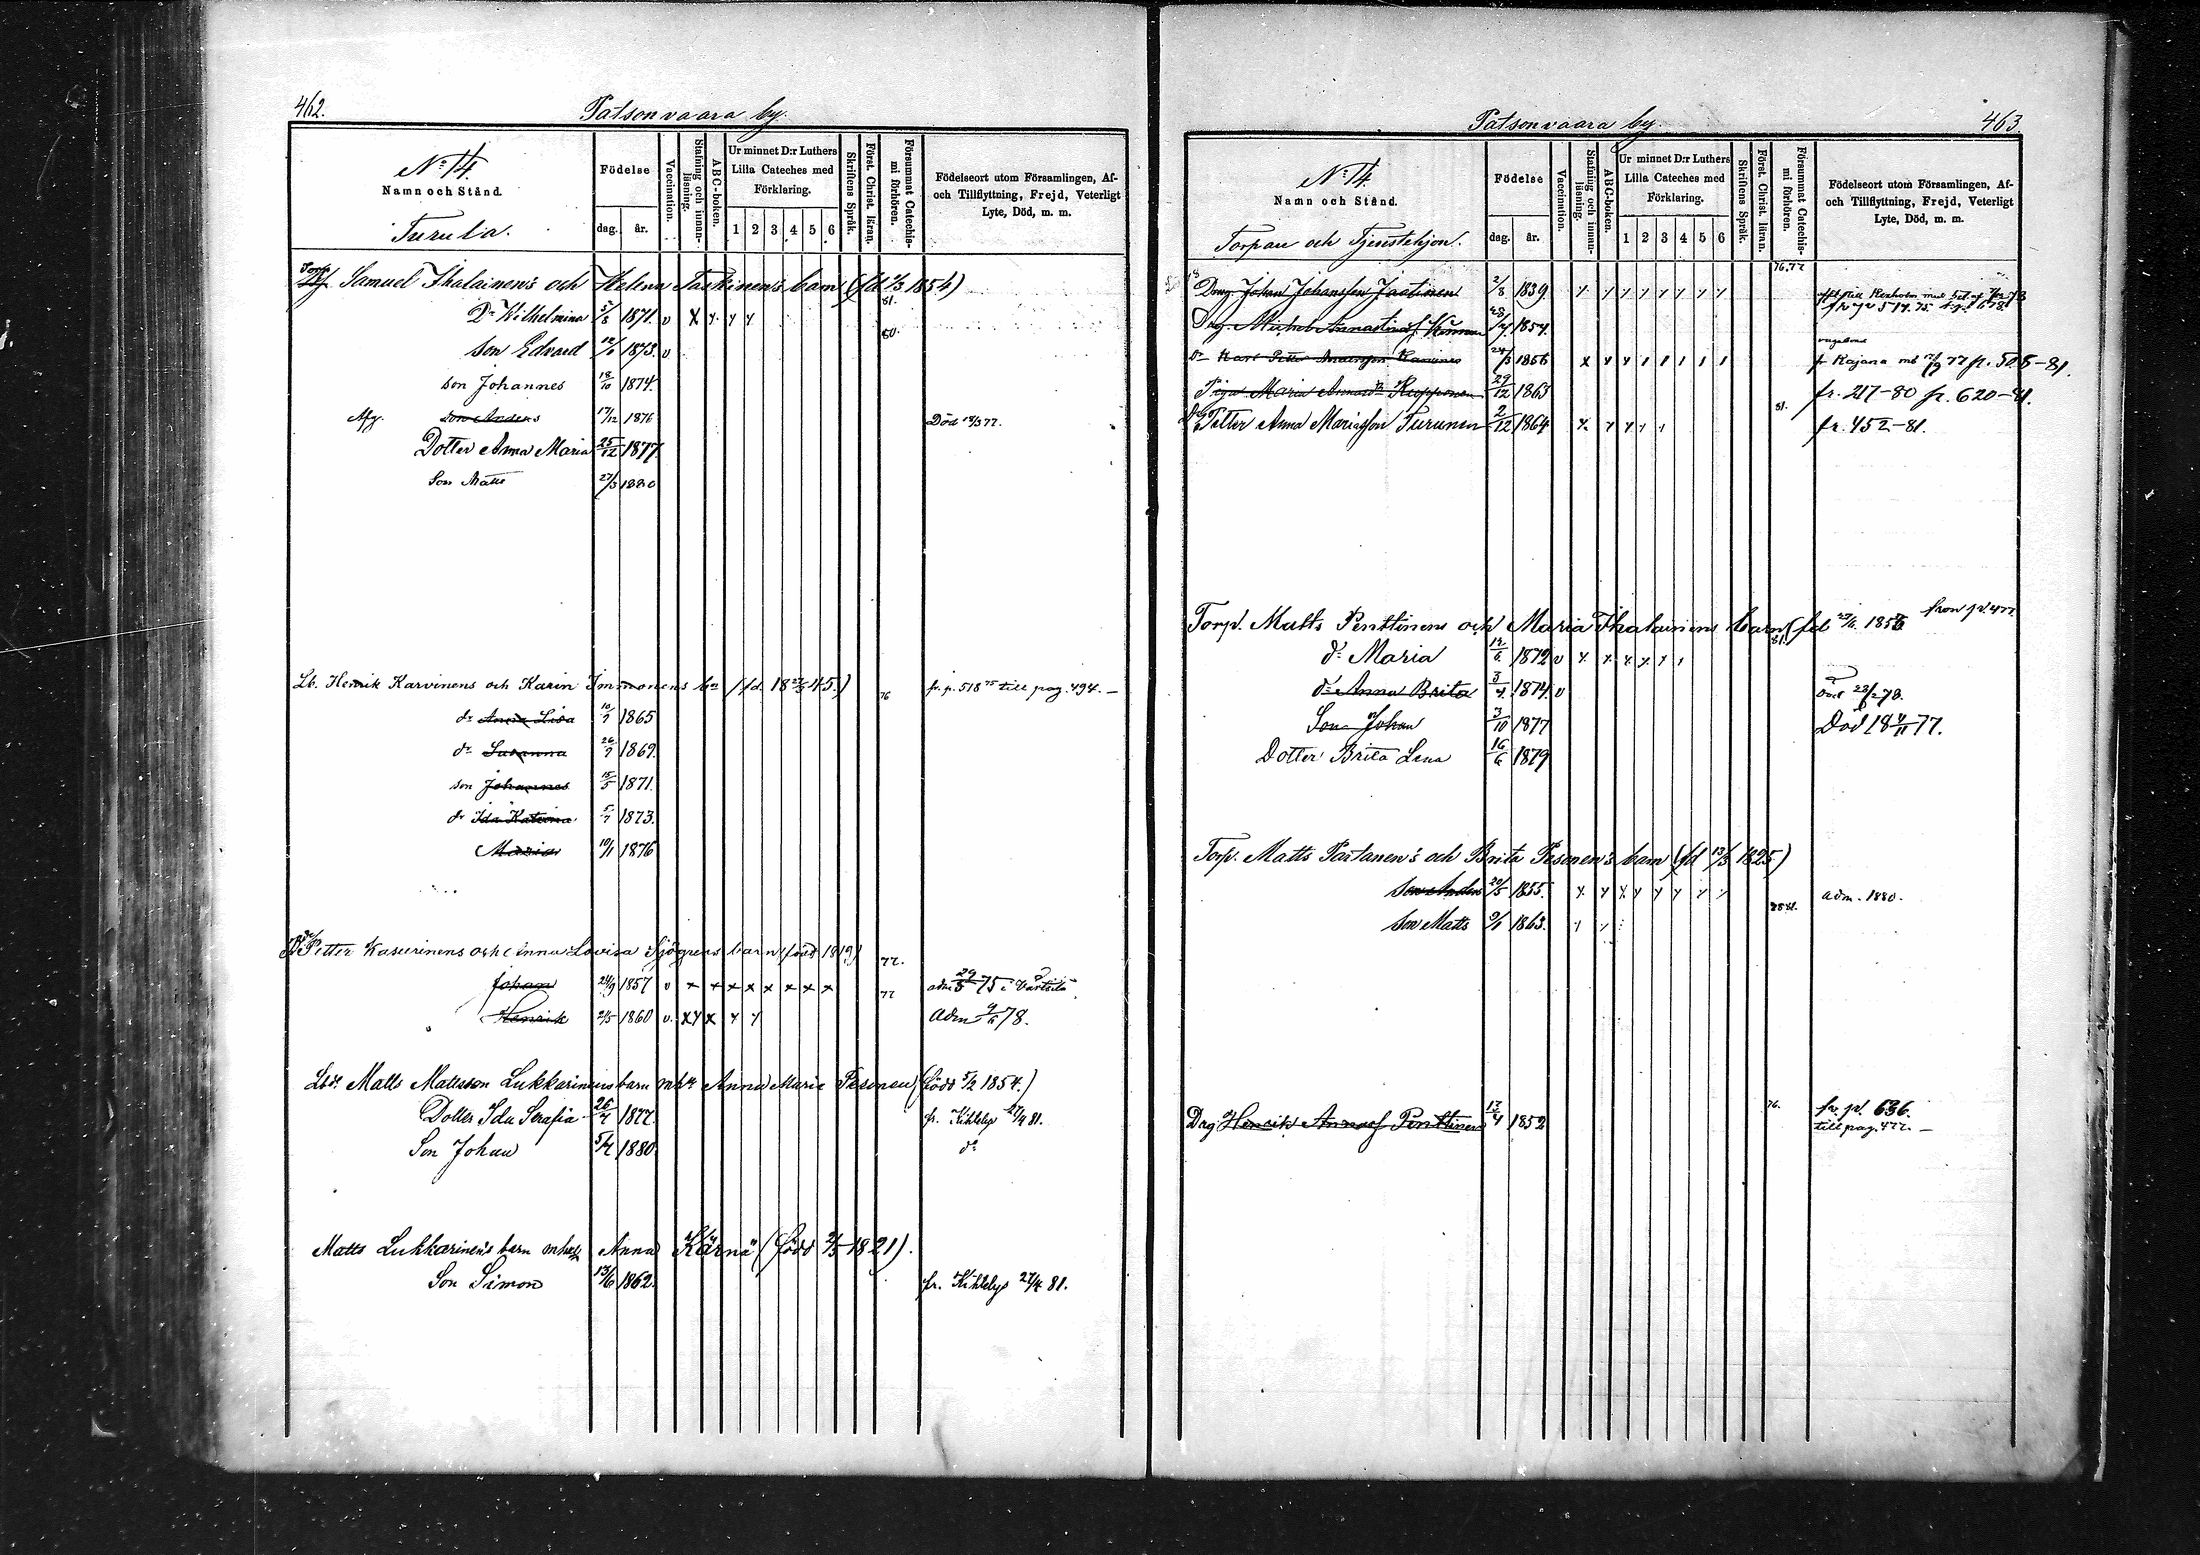 462.
Patsonvaara by.
No 14.
Namn och Stånd.
Turula.
Födelse
dag. år.
Vaccination.
Stafning och innanläsning.
ABC-boken.
Ur minnet D:r Luthers Lilla Cateches med Förklaring.
1 2 3 4 5 6
Skriftens Språk.
Först. Christ. läran.
Försummat Catechismi förhören.
Födelseort utom Församlingen, Af- och Tillflyttning, Frejd, Veterligt Lyte, Död, m. m.
Torp. Samuel Ikalainen's och Helena Taskinen's barn (fd 2/3 1854)
Dr Wilhelmina 5/8 1871. v x x y y 81.
son Edvard 12/1 1873. v 80.
son Johannes 18/10 1874.
Afg. son Anders 17/12 1876 Död 13/3 77.
Dotter Anna Maria 25/12 1877.
Son Matts 27/3 1880
Lb. Henrik Karvinens och Karin Immonens bn (fd. 18 27/3 45.) 76 fr. p. 518 75 till pag. 494. —
dr Anna Lisa 10/7 1865
dr Susanna 26/7 1869.
son Johannes 15/5 1871.
dr Ida Katrina 5/7 1873.
Maria 10/1 1876
Petter Kasurinens och Anna Lovisa Sjögrens barn (född 1819) 77.
Johan 24/9 1857 v x x x x x x x x 77 adm 29/5 75 i Värtsilä
Henrik 2/5 1860 v. x y x y y Adm 9/6 78.
Lbde Matts Mattsson Lukkarinens barn mhu Anna Maria Pesonen (född 5/2 1854.)
Dotter Ida Serafia 26/7 1877. fr. Kihtelys 27/4 81.
Son Johan 5/4 1880 do
Matts Lukkarinen's barn mhu Anna Kärnä (född 2/5 1821).
Son Simon 13/6 1862. fr. Kihtelys 27/4 81.
Patsonvaara by.
463.
No 14.
Namn och Stånd.
Torpau och Tjenstehjon.
Födelse
dag. år.
Vaccination.
Stafning och innanläsning.
ABC-boken.
Ur minnet D:r Luthers Lilla Cateches med Förklaring.
1 2 3 4 5 6
Skriftens Språk.
Först. Christ. läran.
Försummat Catechismi förhören.
Födelseort utom Församlingen, Af- och Tillflyttning, Frejd, Veterligt Lyte, Död, m. m.
76.77
Dreng. Johan Johansson Jaatinen 2/8 1839
Drg. Michel 28/7 1854.
Karl Petter 24/3 1856 fr Kajana 77 fr. 505–81.
Piga Maria Rupponen 29/12 1863 fr. 217–80 fr. 620–81.
Drg Petter Anna Mariasson Turunen 2/12 1864 81. fr. 452–81.
Torp. Matts Penttinens och Maria Ikalainens barn (fd 27/11 1856 från pd. 477
dr Maria 12/6 1872 v 81.
dr Anna Brita 3/4 1874. v Död 28/2 78.
Son Johan 3/10 1877 Död 18 4/11 77.
Dotter Brita Lena 16/6 1879
Torp. Matts Partanen's och Brita Pesonen's barn (fd 13/3 1825)
son Anders 20/5 1855. adm. 1880.
son Matts 9/1 1863.
Drg Henrik Annasson Penttinen 17/4 1852 76. fr. pd. 636.
till pag. 477. —